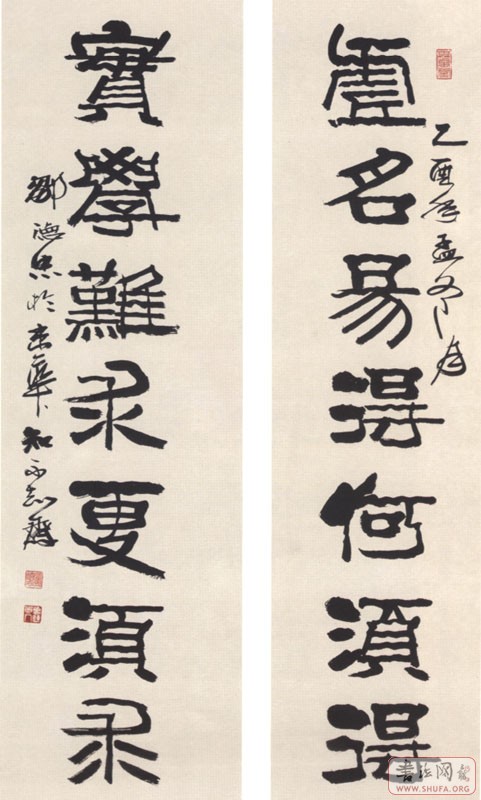 虛名易得何須得
乙酉年孟
實學難求更須求
德忠於京華知不齋
书法网
WWW.SHUFA.ORG